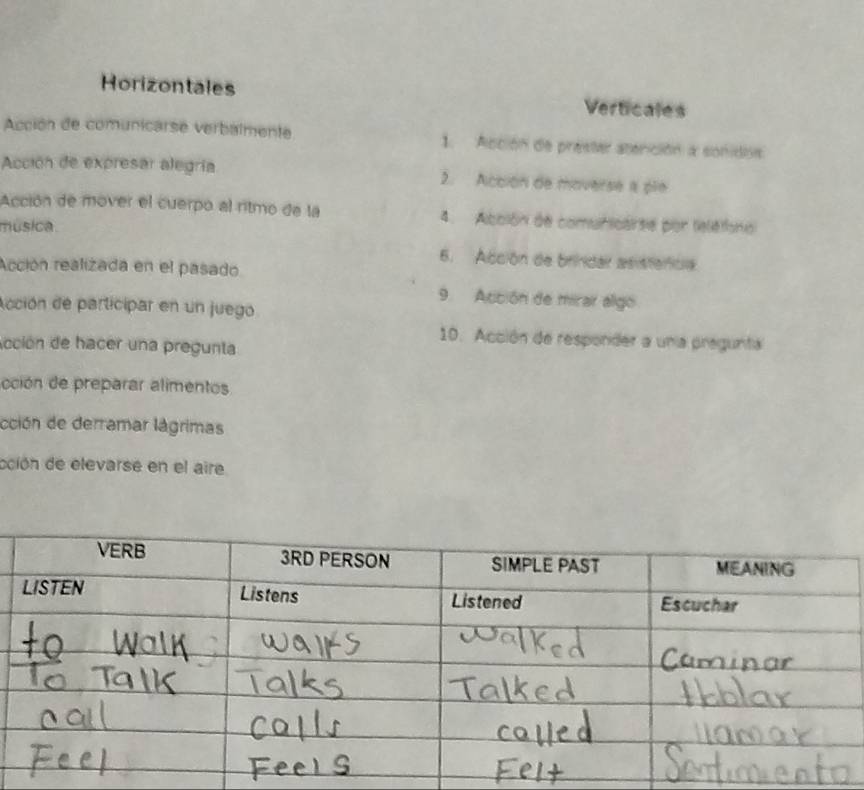 Horizontales
Acción de comunicarse verbalmente
Acción de expresar alegría
Acción de mover el cuerpo al ritmo de la
música.
Acción realizada en el pasado
Acción de participar en un juego
Acción de hacer una pregunta
cción de preparar alimentos
cción de derramar lágrimas
cción de elevarse en el aire
Verticales
1. Acción de prestar atención a sonidos
2. Acción de moverse a pie
4. Acción de comunicarse por teléfono
6. Acción de brindar asistencia
9. Acción de mirar algo
10. Acción de responder a una pregunta
VERB 3RD PERSON SIMPLE PAST MEANING
LISTEN Listens Listened Escuchar
to Walk walks walked Caminar
To Talk Talks Talked Hablar
call calls called llamar
Feel Feels Felt Sentimento